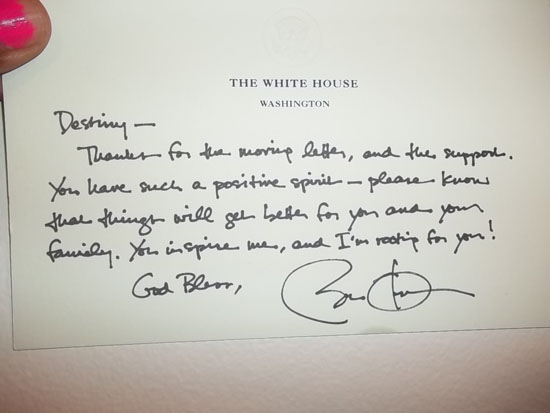 THE WHITE HOUSE
WASHINGTON
Destiny —
Thanks for the moving letter, and the support.
You have such a positive spirit — please know
that things will get better for you and your
family. You inspire me, and I'm rooting for you!
God Bless,